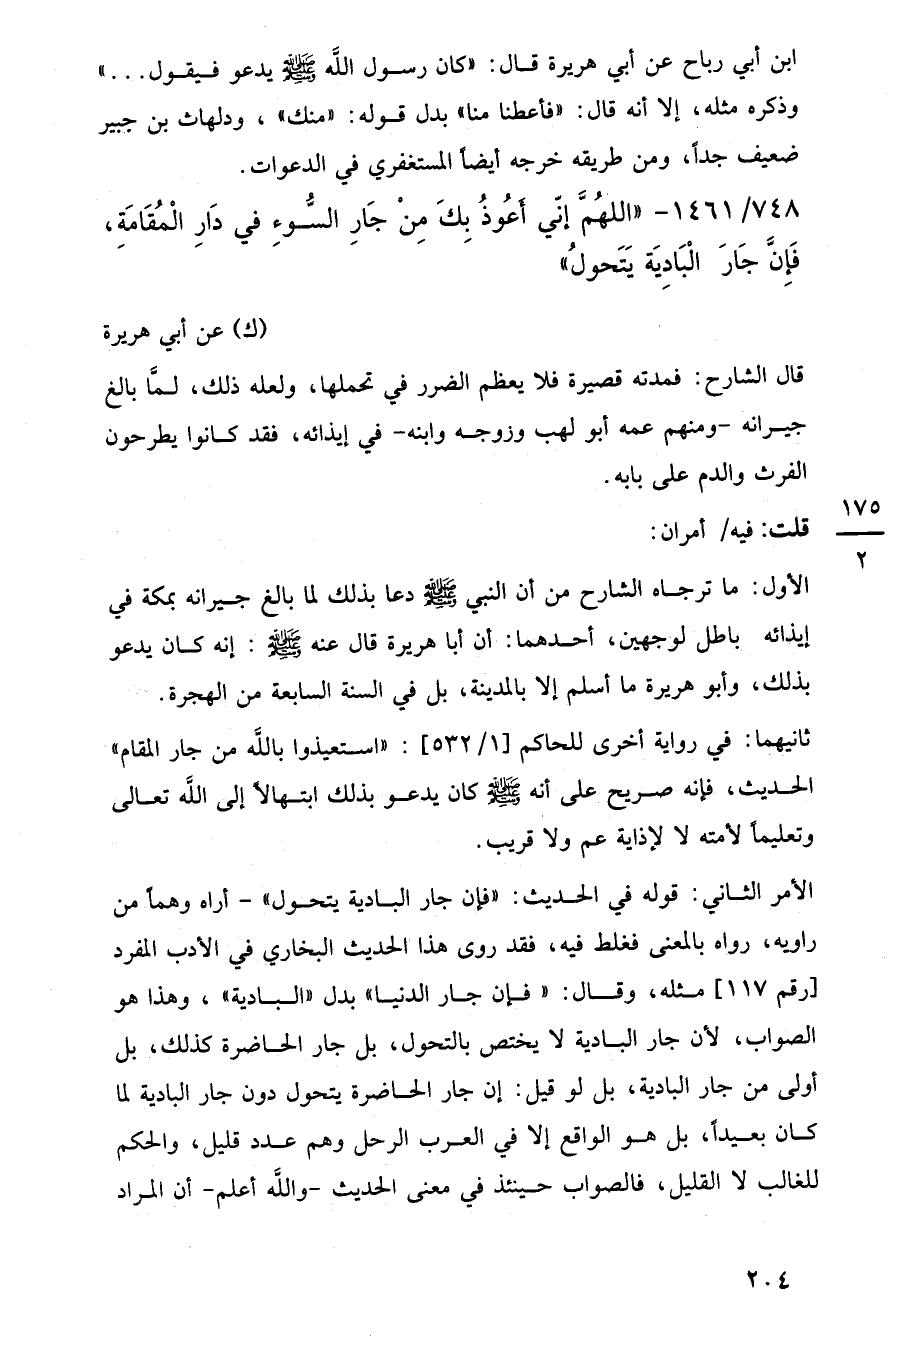 ابن أبي رباح عن أبي هريرة قـال: «كان رسـول اللَّه ﷺ يدعو فـيـقـول...»
وذكره مثله، إلا أنه قال: «فأعطنا منا» بدل قـولـه: «منك» ، ودلهاث بن جبير
ضعيف جداً، ومن طريقه خرجه أيضاً المستغفري في الدعوات.
١٤٦١/٧٤٨- «اللهُمَّ إنّي أَعُوذُ بِكَ مِنْ جَارِ السُّوءِ في دَارِ الْمُقَامَةِ،
فَإِنَّ جَارَ الْبَادِيَةِ يَتَحولُ»
(ك) عن أبي هريرة
قال الشارح: فمدته قصيرة فلا يعظم الضرر في تحملها، ولعله ذلك، لـمَّا بالغ
جيـرانه -ومنهم عمه أبو لهب وزوجـه وابنه- في إيذائه، فقد كـانوا يطرحون
الفرث والدم على بابه.
١٧٥
٢
قلت: فيه/ أمران:
الأول: ما ترجـاه الشارح من أن النبي ﷺ دعا بذلك لما بالغ جـيـرانه بمكة في
إيذائه باطل لوجهين، أحـدهما: أن أبا هريرة قال عنه ﷺ : إنه كـان يدعو
بذلك، وأبو هريرة ما أسلم إلا بالمدينة، بل في السنة السابعة من الهجرة.
ثانيهما: في رواية أخرى للحاكم [١/ ٥٣٢] : «اسـتعيذوا باللَّه من جار المقام»
الحـديث، فإنه صـريح على أنه ﷺ كان يدعـو بذلك ابتـهالاً إلى اللَّه تعـالى
وتعليماً لأمته لا لإذاية عم ولا قريب.
الأمر الثـاني: قوله في الحـديث: «فإن جار البـادية يتحـول» - أراه وهماً من
راويه، رواه بالمعنى فغلط فيه، فقد روى هذا الحديث البخاري في الأدب المفرد
[رقم ١١٧] مـثله، وقـال: « فـإن جـار الدنيـا» بدل «البـادية» ، وهذا هو
الصواب، لأن جار البـادية لا يختص بالتحول، بل جار الحـاضرة كذلك، بل
أولى من جار البادية، بل لو قيل: إن جار الحـاضرة يتحول دون جار البادية لما
كـان بعـيداً، بل هـو الواقع إلا في العـرب الرحل وهم عـدد قليل، والحكم
للغالب لا القليل، فالصواب حـينئذ في معنى الحديث -واللَّه أعلم- أن المـراد
٢٠٤